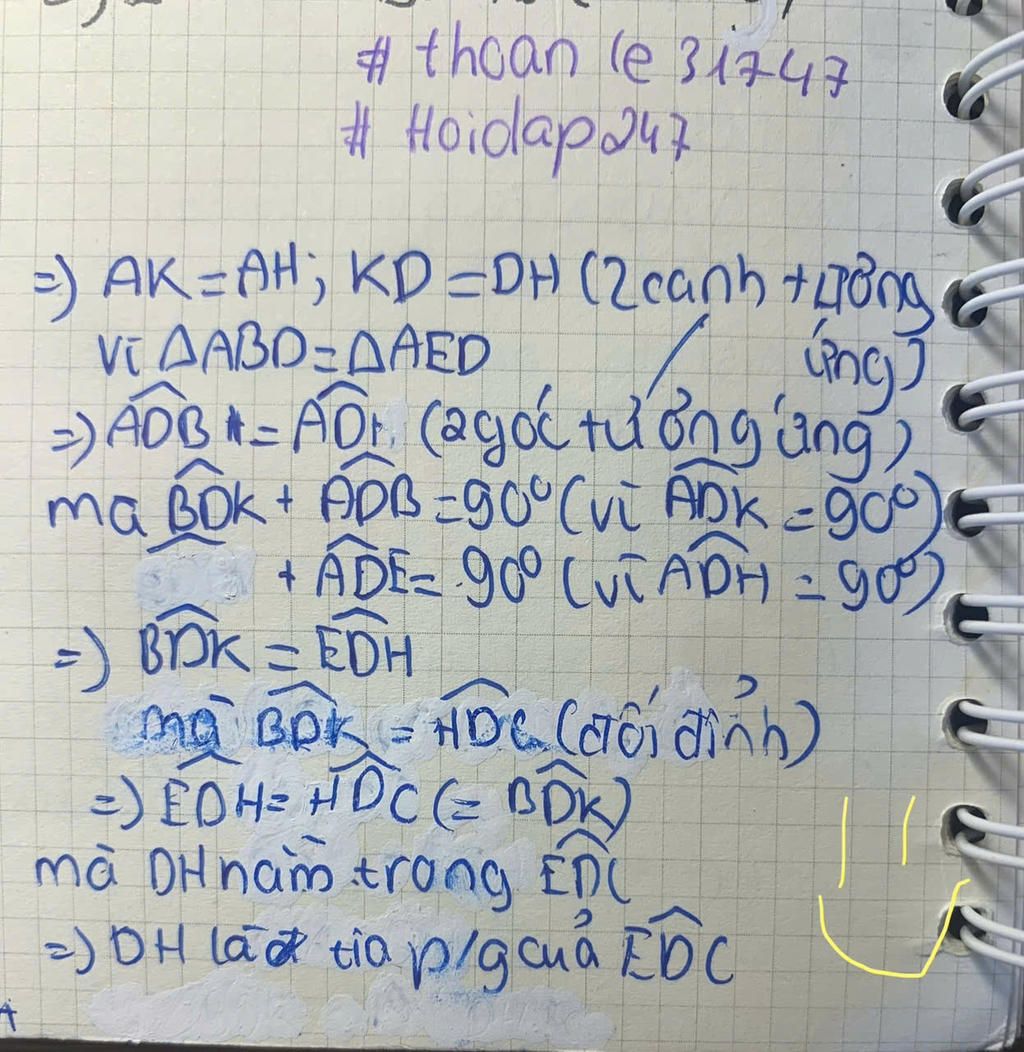 # thoan le 31747
# Hoidap247
=) AK = AH ; KD = DH (2 cạnh tương ứng)
Vì ΔABD = ΔAED
=) \widehat{ADB} = (2 góc tương ứng)
mà \widehat{BDK} + \widehat{ADB} = 90° (vì \widehat{ADK} = 90°)
+ \widehat{ADE} = 90° (vì \widehat{ADH} = 90°)
=) \widehat{BDK} = \widehat{EDH}
mà \widehat{BDK} = \widehat{HDC} (đối đỉnh)
=) \widehat{EDH} = \widehat{HDC} (= \widehat{BDK})
mà DH nằm trong \widehat{EDC}
=) DH là tia p/g của \widehat{EDC}